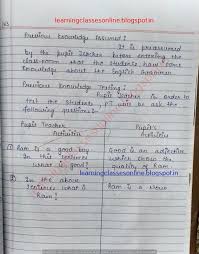 learningclassesonline.blogspot.in
Previous Knowledge Assumed :
It is preassumed
by the pupil Teacher before entering the
class-room what the students have some
knowledge about the English Grammar
Previous Knowledge Testing :
Pupil Teacher in order to
test the students, PT will be ask the
following questions :
Pupil Teacher Activities
Pupil's Activities
① Ram is a good boy
In this sentence
what is good?
Good is an adjective
which shows the
quality of Ram
learningclassesonline.blogspot.in
② In the above
sentences what is
Ram?
Ram is a Noun